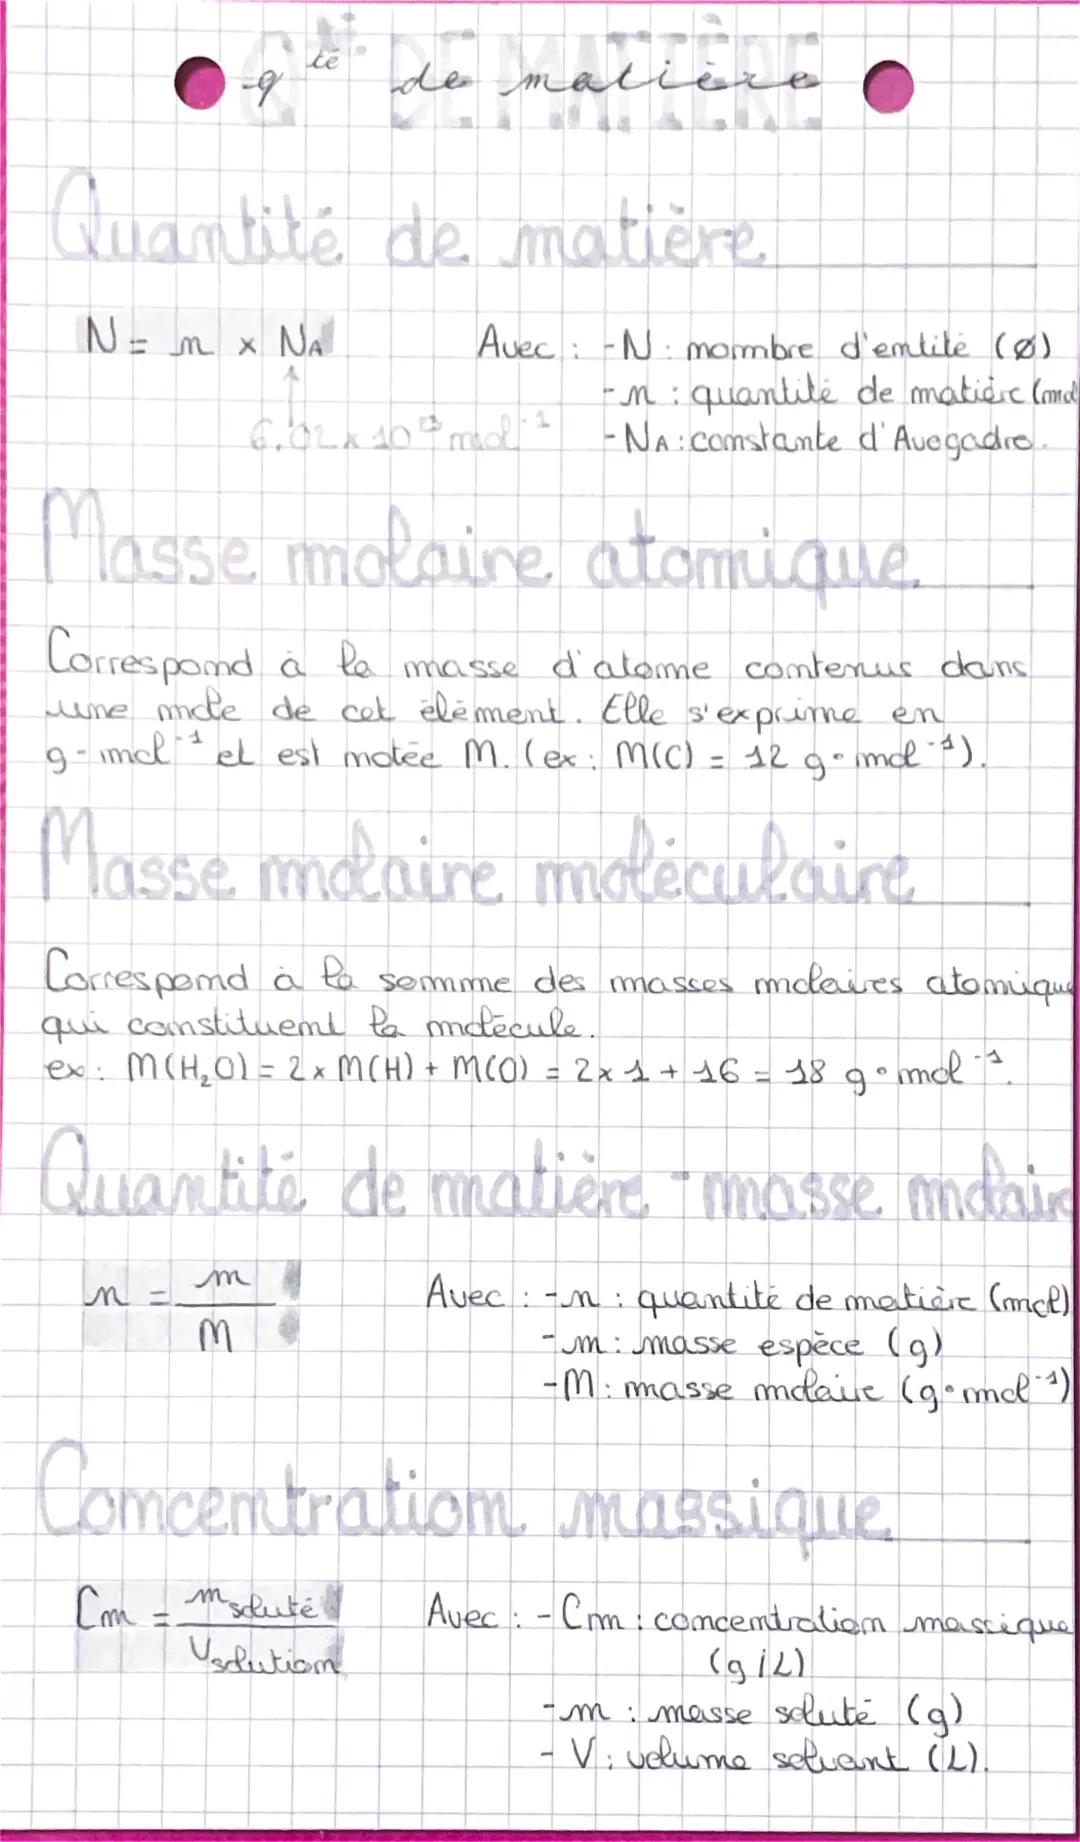 qté de matière
Quantité de matière
N = n x NA
6,02 x 10²³ mol⁻¹
Avec : - N : nommbre d'entité (ø)
- n : quantité de matière (mol
- NA : constante d'Avogadro.
Masse molaire atomique
Correspond à la masse d'atome contenus dans
une mole de cet élément. Elle s'exprime en
g·mol⁻¹ et est notée M. (ex : M(C) = 12 g·mol⁻¹).
Masse molaire moléculaire
Correspond à la somme des masses molaires atomique
qui constituent la molécule.
ex : M(H₂O) = 2 x M(H) + M(O) = 2 x 1 + 16 = 18 g·mol⁻¹.
Quantité de matière - masse molaire
n = m / M
Avec : - n : quantité de matière (mol)
- m : masse espèce (g)
- M : masse molaire (g·mol⁻¹)
Concentration massique
Cm = m soluté / V solution
Avec : - Cm : concentration massique
(g/L)
- m : masse soluté (g)
- V : volume solvant (L).